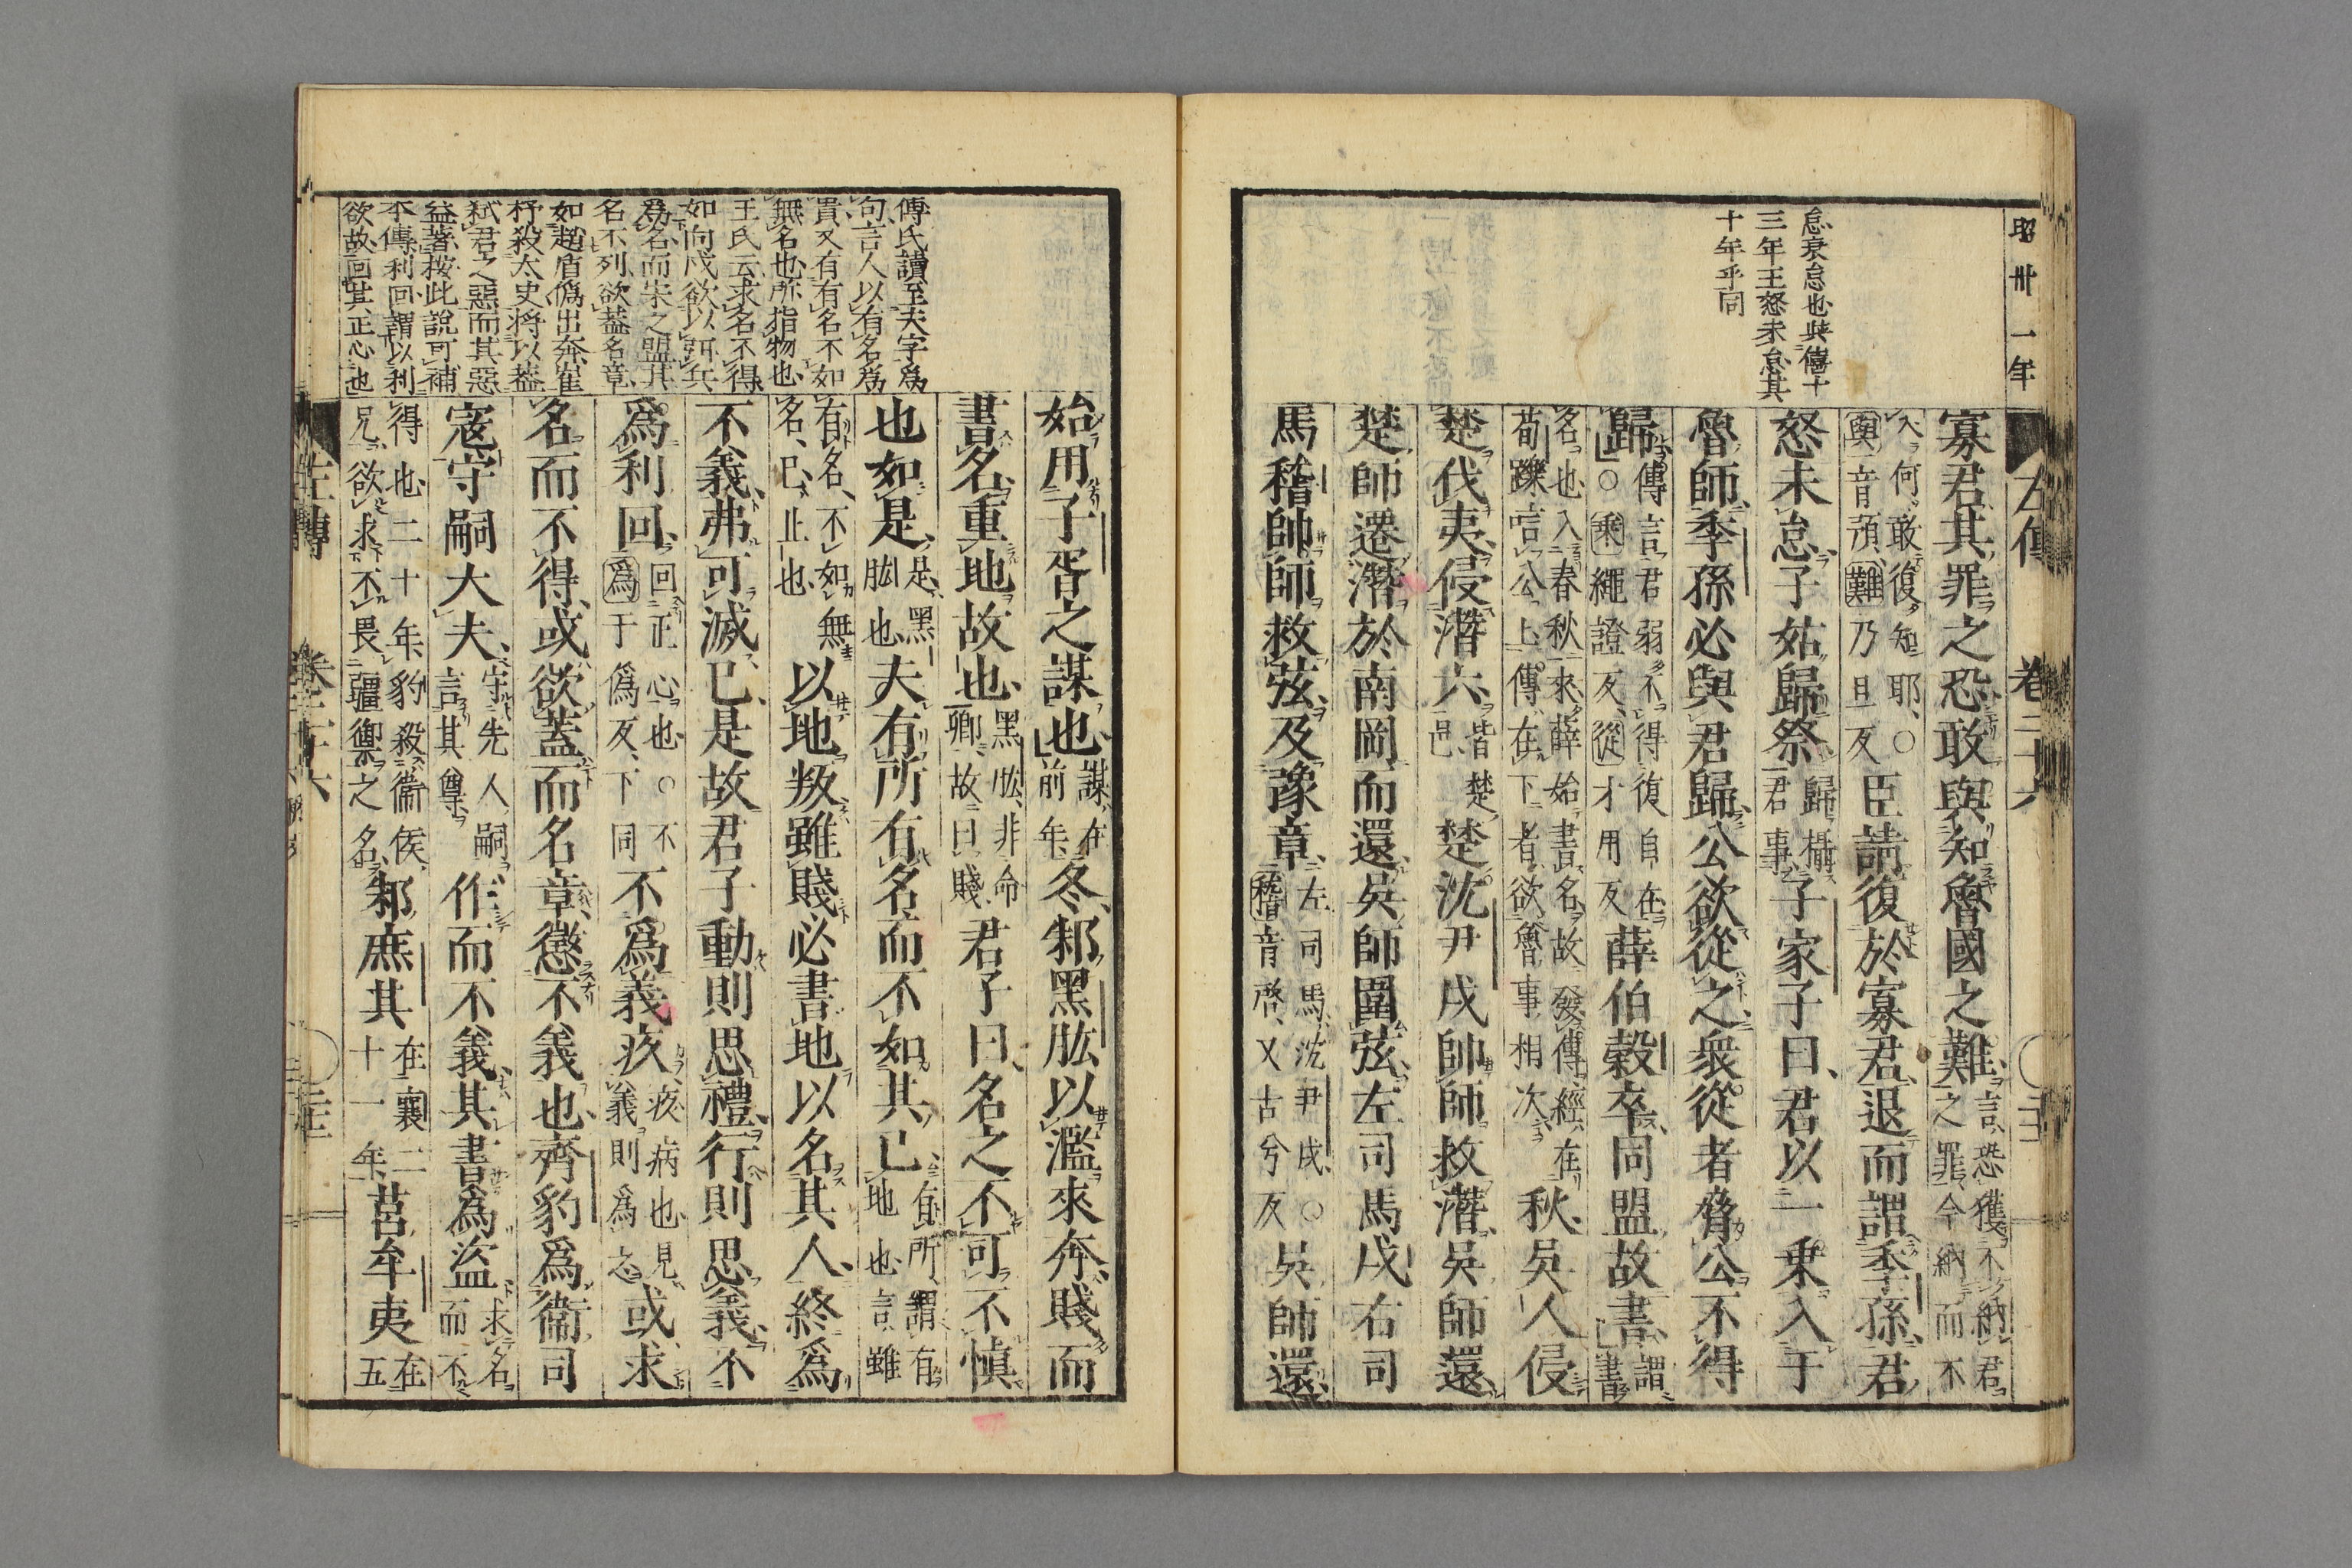 昭卅一年
怠衰怠也與僖十
三年王怒未怠其
十年乎同
左傳 卷二十六
寡君其罪之恐敢與知魯國之難言恐獲不納君之罪今納而不
入何敢復知耶〇與音預難乃旦反臣請復於寡君退而謂季孫君
怒未怠子姑歸祭歸攝君事子家子曰君以一乘入于
魯師季孫必與君歸公欲從之衆從者脅公不得
歸傳言君弱不得復自在〇乘繩證反從才用反薛伯穀卒同盟故書謂書
名也入春秋來薛始書名故發傳經在荀躒唁公上傳在下者欲魯事相次秋吳人侵
楚伐夷侵潛六皆楚邑楚沈尹戌帥師救潛吳師還
楚師遷潛於南岡而還吳師圍弦左司馬戌右司
馬稽帥師救弦及豫章左司馬沈尹戌〇稽音啓又古兮反吳師還
始用子胥之謀也謀在前年冬邾黑肱以濫來奔賤而
書名重地故也黑肱非命卿故曰賤君子曰名之不可不愼
也如是是黑肱也夫有所有名而不如其已有所謂有地也言雖
有名不如無名已止也以地叛雖賤必書地以名其人終爲
不義弗可滅已是故君子動則思禮行則思義不
爲利回回正心也〇不爲于僞反下同不爲義疚疚病也見義則爲之或求
名而不得或欲蓋而名章懲不義也齊豹爲衞司
寇守嗣大夫守先人嗣言其尊作而不義其書爲盜求名而不
得也二十年豹殺衞侯兄欲求不畏彊禦之名邾庶其在襄二十一年莒牟夷在五
傅氏讀至夫字爲
句言人以有名爲
貴又有有名不如
無名也所指物也
王氏云求名不得
如向戌欲以弭兵
爲名而宋之盟其
名不列欲蓋名章
如趙盾僞出奔崔
杼殺太史將以蓋
弒君之惡而其惡
益著按此說可補
不傳利回謂以利
欲故回其正心也
左傳 卷二十六